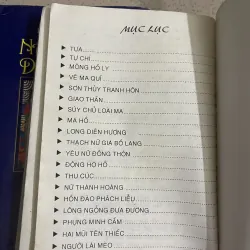 MỤC LỤC
TỰA
TỰ CHÍ
MÓNG HỒ LY
VẼ MA QUỈ
SƠN THỦY TRANH HỒN
GIAO THẦN
SÚY CHỦ LOÀI MA
MA HỒ
LONG DIÊN HƯƠNG
THẠCH NỮ GIẢ BỐ LANG
YÊU NỮ ĐÔNG THÔN
ĐỒNG HỒ HỒ
THU CÚC
NỮ THÀNH HOÀNG
HÒN ĐẢO PHÁCH LIỄU
LÔNG NGỖNG ĐƯA ĐƯỜNG
PHỤNG MINH CẦM
HAI MÚI TÊN THIẾC
NGƯỜI LÁI MÈO